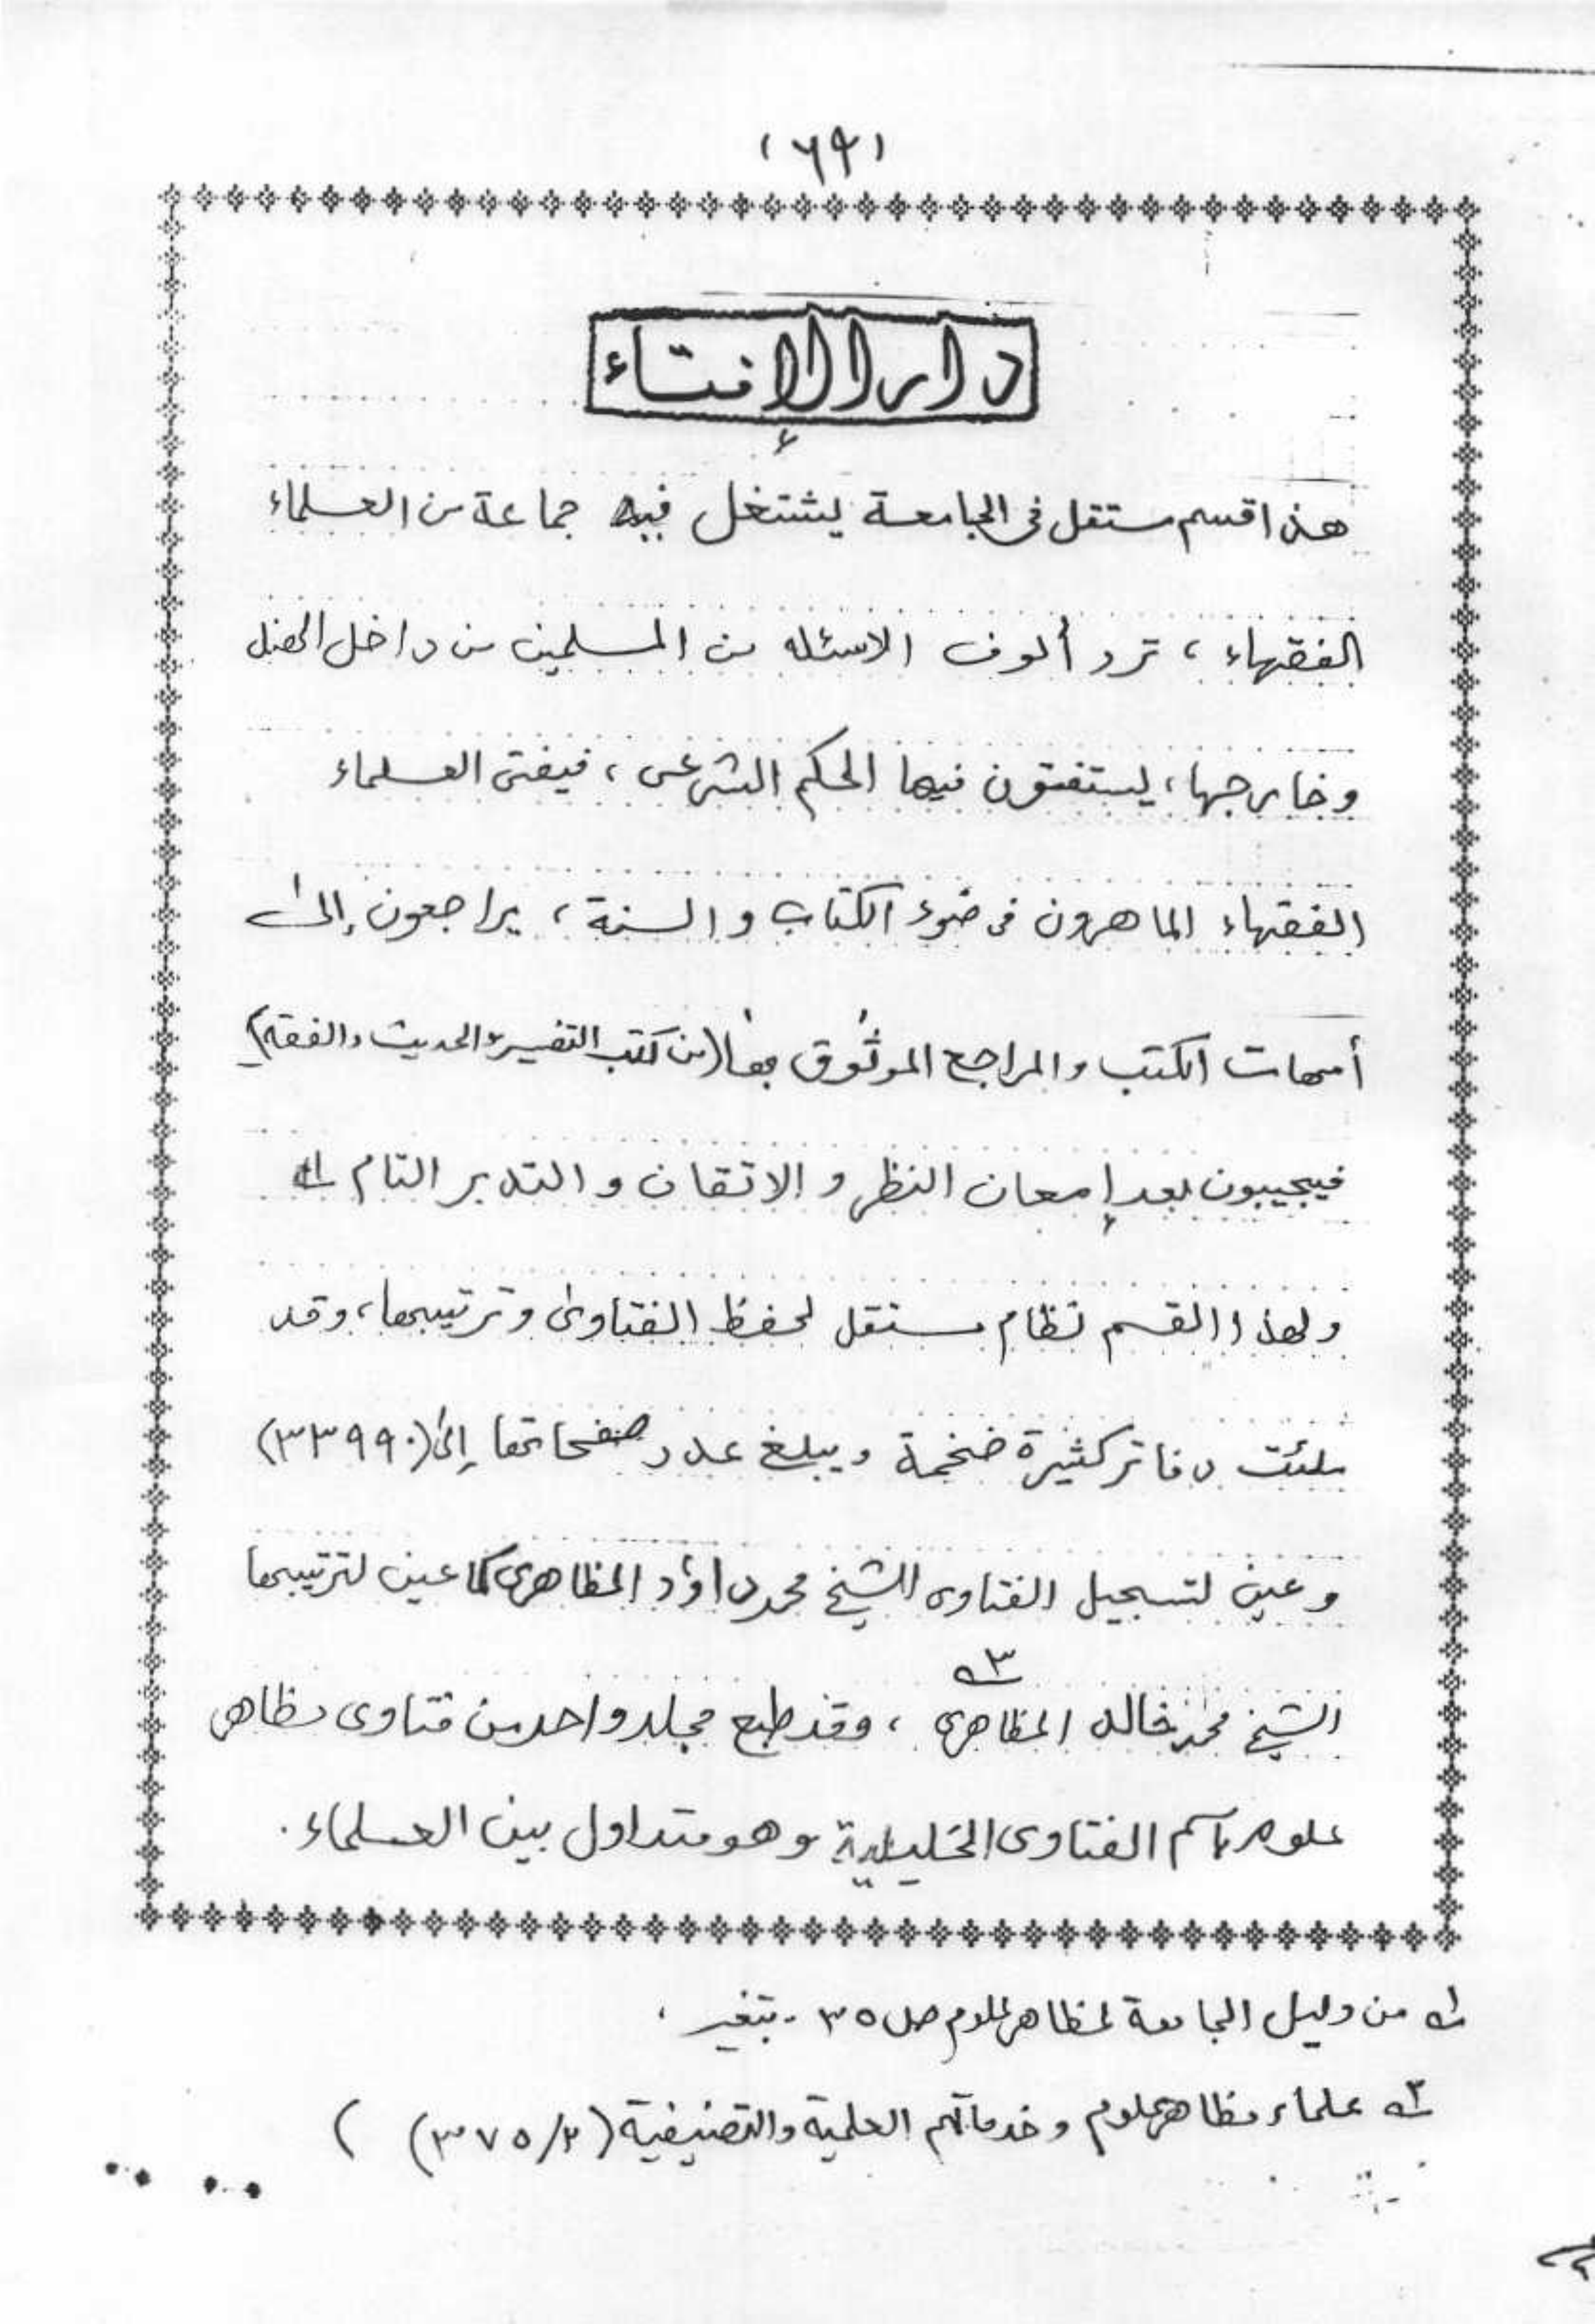 (٦٩)
دار الإفتاء
هذا قسم مستقل فى الجامعة يشتغل فيه جماعة من العلماء
الفقهاء ، ترد ألوف الاسئله من المسلمين من داخل الهند
وخارجها ، يستفتون فيها الحكم الشرعى ، فيفتى العلماء
الفقهاء الماهرون فى ضوء الكتاب والسنة ، يراجعون إلى
أمهات الكتب والمراجع الموثوق بها (من كتب التفسير والحديث والفقه)
فيجيبون بعد إمعان النظر و الاتقان و التدبر التام ١ه
ولهذا القسم نظام مستقل لحفظ الفتاوى وترتيبها ، وقد
ملئت دفاتر كثيرة ضخمة ويبلغ عدد صفحاتها إلى (٣٣٩٩٠)
وعين لتسجيل الفتاوى الشيخ محمد داؤد المظاهرى كما عين لترتيبها
الشيخ محمد خالد المظاهرى ٣ه ، وقد طبع مجلد واحد من فتاوى مظاهر
علوم باسم الفتاوى الخليلية وهو متداول بين العلماء .
١ه من دليل الجامعة لمظاهر علوم ص ٣٥ - بتغير .
٢ه علماء مظاهر علوم وخدماتهم العلمية والتصنيفية (٣٧٥/٢) )